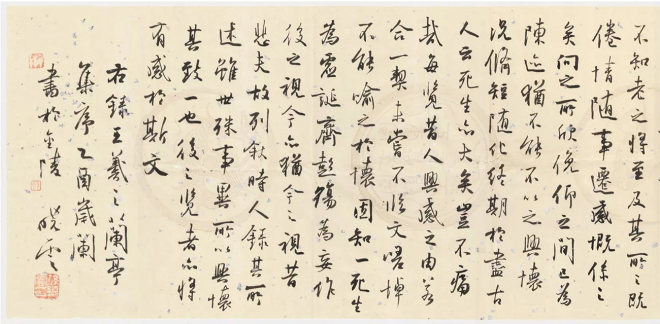 不知老之將至及其所之既
倦情隨事遷感慨係之
矣向之所欣俛仰之間已為
陳迹猶不能不以之興懷
況脩短隨化終期於盡古
人云死生亦大矣豈不痛
哉每覽昔人興感之由若
合一契未嘗不臨文嗟悼
不能喻之於懷固知一死生
為虛誕齊彭殤為妄作
後之視今亦猶今之視昔
悲夫故列敘時人錄其所
述雖世殊事異所以興懷
其致一也後之覽者亦將
有感於斯文
右錄王羲之蘭亭
集序乙酉歲闌
書於金陵 曉雲